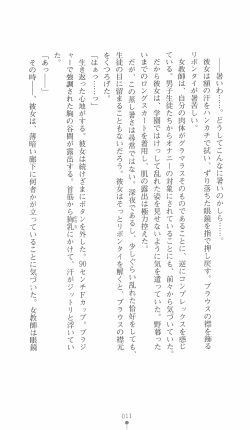 ――暑いわ……。どうしてこんなに暑いのかしら……。
彼女は額の汗をハンカチで拭い、ずり落ちた眼鏡を指で押し戻す。ブラウスの襟を飾る
リボンタイが暑苦しい。
女教師は、自分の肉体がグラマラスそのものであることに、逆にコンプレックスを感じ
ている。男子生徒たちからオナニーの対象にされていることにも、前々から気づいていた。
だから彼女は、学園ではけっして乱れた姿を見せないように気を遣っていた。野暮った
いまでのロングスカートを着用し、肌の露出は極力控えた。
だが、この蒸し暑さは尋常ではない。深夜であるし、少しぐらい乱れた恰好をしても、
生徒の目に留まることもないだろう。彼女はそっとリボンタイを解くと、ブラウスの襟元
をくつろげた。
「はぁっ……っ」
生き返った心地がする。彼女は続けざまにボタンを外した。90センチFカップ。ブラジ
ャーで強調された胸の谷間が露出する。首筋から胸乳にかけて、汗がジットリと浮いてい
た。
「あっ――」
その時――。彼女は、薄暗い廊下に何者かが立っていることに気づいた。女教師は眼鏡
011